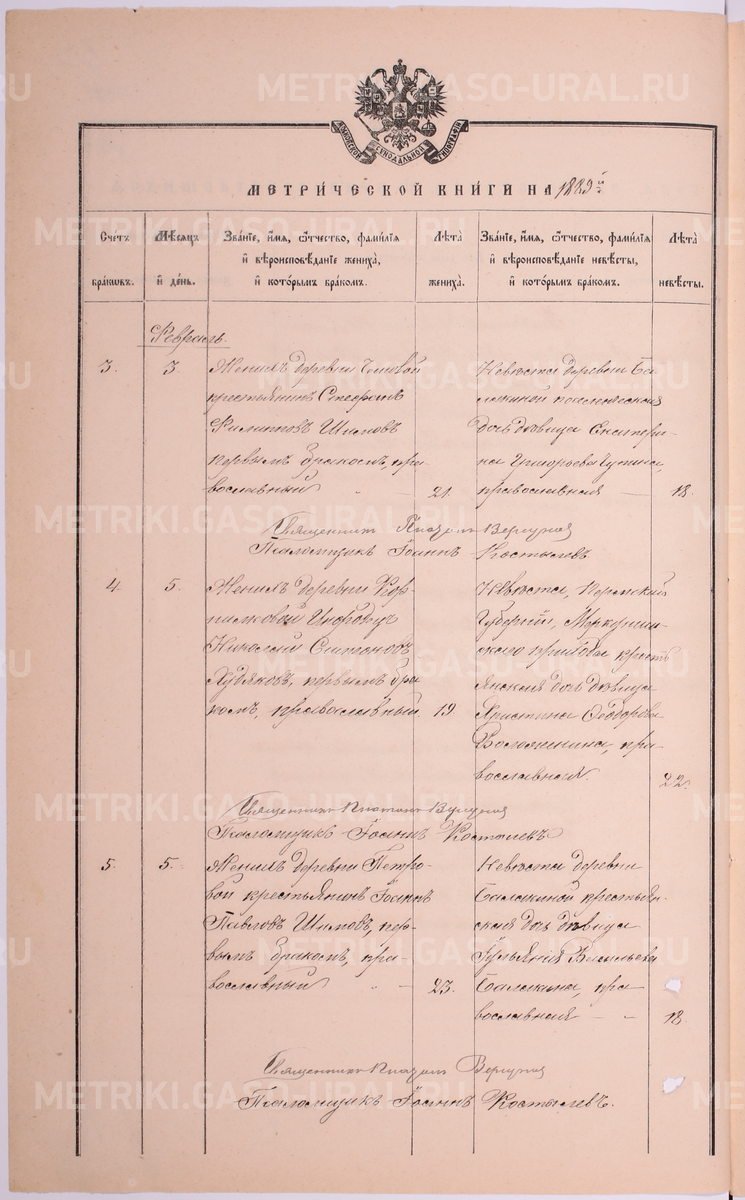 МОСКОВСКОЙ СѴНОДАЛЬНОЙ ТИПОГРАФІИ
МЕТРИ́ЧЕСКОЙ КНИ́ГИ НА 1889й
Сче́тъ бра́кωвъ.
Мѣ́сяцъ и҆ де́нь.
Зва́нїе, и҆́мя, ѻ҆́тчество, фами́лїя
и҆ вѣроисповѣ́данїе жениха̀,
и҆ кото́рымъ бра́комъ.
Лѣ́та жениха̀.
Зва́нїе, и҆́мя, ѻ҆́тчество, фами́лїя
и҆ вѣроисповѣ́данїе невѣ́сты,
и҆ кото́рымъ бра́комъ.
Лѣ́та невѣ́сты.
Февраль.
3.
3
Женихъ деревни
крестьянинъ Стефанъ
Филипповъ Шимовъ
первымъ бракомъ, пра-
вославный
21.
Невѣста деревни Ба-
лакиной
дочь дѣвица Екатери-
на Григорьева
православная
18.
Священникъ Платонъ
Псаломщикъ Іоаннъ Костылевъ
4.
5.
Женихъ деревни Кор-
ниловой
Николай
Худяковъ, первымъ бра-
комъ, православный
19.
Невѣста, Пермской
Губерніи, Меркушин-
скаго прихода кресть
янская дочь дѣвица
Христина Ѳеодорова
православная.
22.
Священникъ Платонъ
Псаломщикъ Іоаннъ Костылевъ
5.
5.
Женихъ деревни Петро-
вой крестьянинъ Іоаннъ
Павловъ Шимовъ, пер-
вымъ бракомъ, пра-
вославный
23.
Невѣста деревни
Балакиной крестьян-
ская дочь дѣвица
Іульянія Васильева
Балакина, пра
вославная
18.
Священникъ Платонъ
Псаломщикъ Іоаннъ Костылевъ.
METRIKI.GASO-URAL.RU